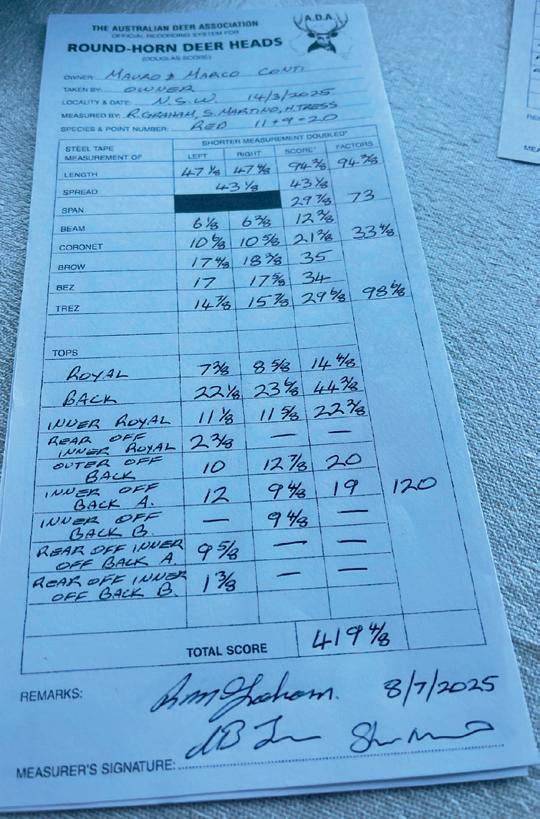 A.D.A.
THE AUSTRALIAN DEER ASSOCIATION
OFFICIAL RECORDING SYSTEM FOR
ROUND-HORN DEER HEADS
(DOUGLAS SCORE)
OWNER: MAURO & MARCO CONTI
TAKEN BY: OWNER
LOCALITY & DATE: N.S.W. 14/3/2025
MEASURED BY: R.GRAHAM, S.MARTINO, H.TRESS
SPECIES & POINT NUMBER: RED 11+9=20
STEEL TAPE MEASUREMENT OF
SHORTER MEASUREMENT DOUBLED*
LEFT RIGHT SCORE* FACTORS
LENGTH 47 1/8 47 4/8 94 2/8 94 2/8
SPREAD 43 1/8 43 1/8
SPAN 29 7/8 73
BEAM 6 1/8 6 2/8 12 2/8
CORONET 10 6/8 10 5/8 21 2/8 33 4/8
BROW 17 4/8 18 3/8 35
BEZ 17 17 5/8 34
TREZ 14 7/8 15 7/8 29 6/8 98 6/8
TOPS
ROYAL 7 2/8 8 5/8 14 4/8
BACK 22 1/8 23 6/8 44 2/8
INNER ROYAL 11 1/8 11 5/8 22 2/8
REAR OFF INNER ROYAL 2 3/8 — —
OUTER OFF BACK 10 12 7/8 20
INNER OFF BACK A. 12 9 4/8 19 120
INNER OFF BACK B — 9 4/8 —
REAR OFF INNER OFF BACK A. 9 5/8 — —
REAR OFF INNER OFF BACK B. 1 3/8 — —
TOTAL SCORE 419 4/8
REMARKS: 8/7/2025
MEASURER'S SIGNATURE: